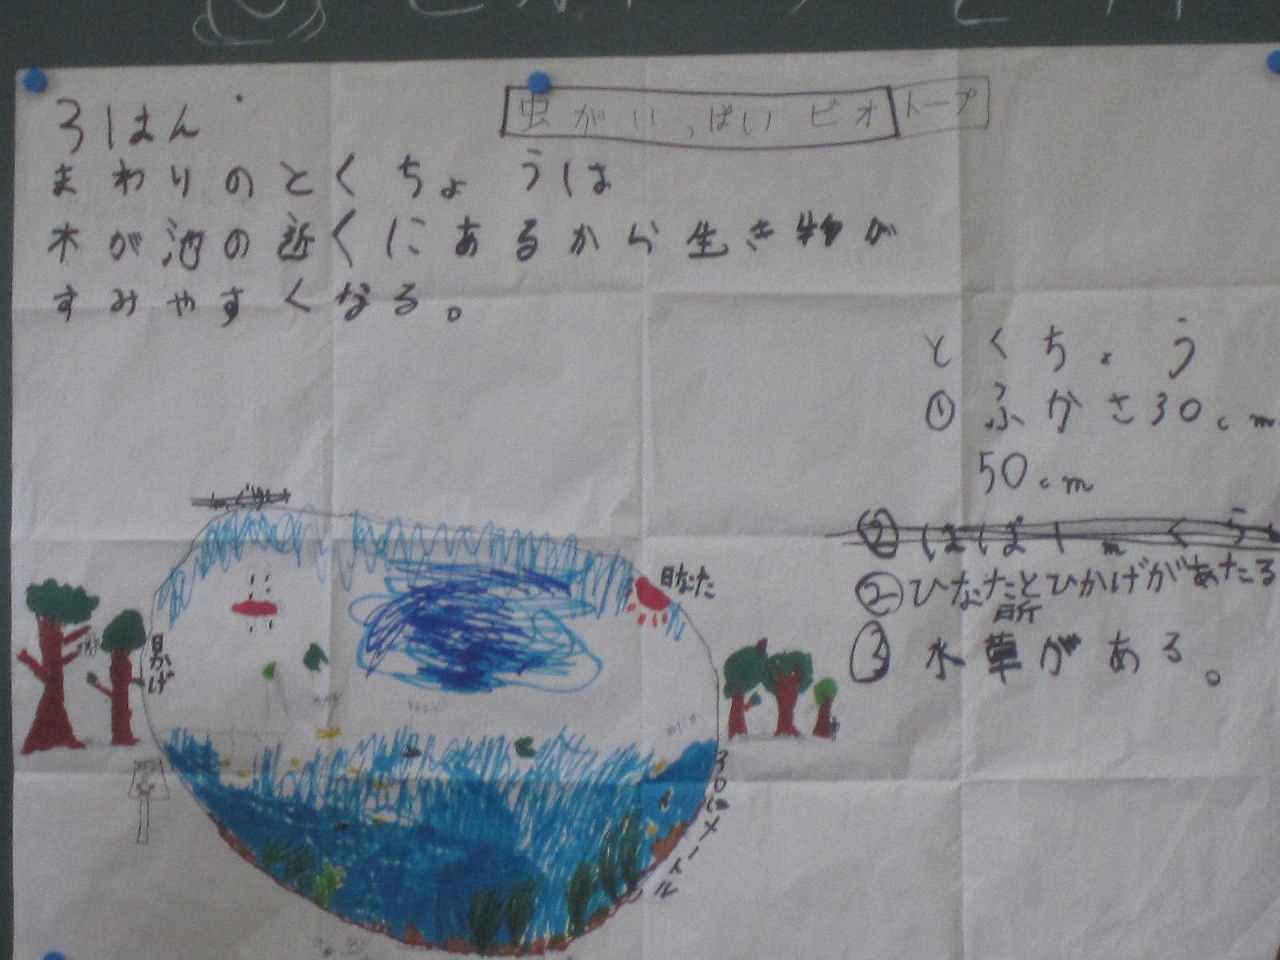 虫がいっぱいビオトープ
3はん
まわりのとくちょうは
木が池の近くにあるから生き物が
すみやすくなる。
とくちょう
①ふかさ30cm
50cm
②ひなたとひかげがあたる
所
③水草がある。
日なた
日かげ
30cmメートル